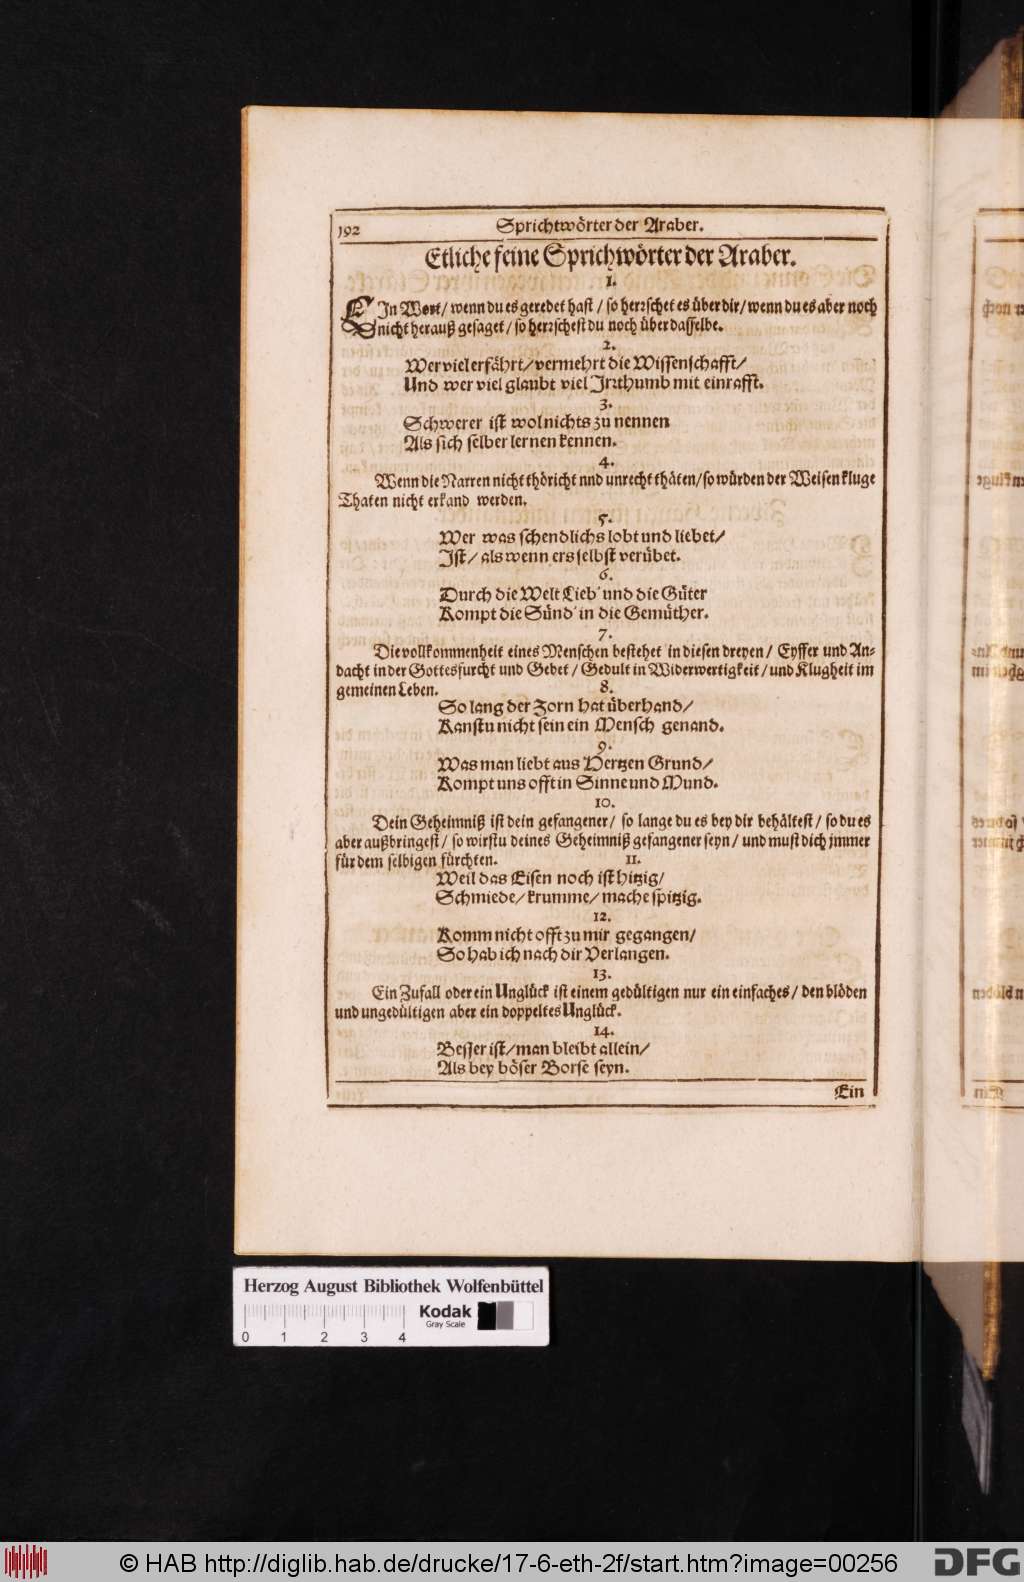 192
Sprichtwörter der Araber.
Etliche feine Sprichwörter der Araber.
1.
EIn Wort / wenn du es geredet hast / so herrschet es über dir / wenn du es aber noch
nicht herauß gesaget / so herrschest du noch über dasselbe.
2.
Wer viel erfährt / vermehrt die Wissenschafft /
Und wer viel glaubt viel Irrthumb mit einrafft.
3.
Schwerer ist wol nichts zu nennen
Als sich selber lernen kennen.
4.
Wenn die Narren nicht thöricht nnd unrecht thäten / so würden der Weisen kluge
Thaten nicht erkand werden.
5.
Wer was schendlichs lobt und liebet /
Ist / als wenn ers selbst verübet.
6.
Durch die Welt Lieb' und die Güter
Kompt die Sünd' in die Gemüther.
7.
Die vollkommenheit eines Menschen bestehet in diesen dreyen / Eyffer und An-
dacht in der Gottesfurcht und Gebet / Gedult in Widerwertigkeit / und Klugheit im
gemeinen Leben. 8.
So lang der Zorn hat überhand /
Kanstu nicht sein ein Mensch genand.
9.
Was man liebt aus Hertzen Grund /
Kompt uns offt in Sinne und Mund.
10.
Dein Geheimniß ist dein gefangener / so lange du es bey dir behältest / so du es
aber außbringest / so wirstu deines Geheimniß gefangener seyn / und must dich jmmer
für dem selbigen fürchten. 11.
Weil das Eisen noch ist hitzig /
Schmiede / krumme / mache spitzig.
12.
Komm nicht offt zu mir gegangen /
So hab ich nach dir Verlangen.
13.
Ein Zufall oder ein Unglück ist einem gedültigen nur ein einfaches / den blöden
und ungedültigen aber ein doppeltes Unglück.
14.
Besser ist / man bleibt allein /
Als bey böser Borse seyn.
Ein
Herzog August Bibliothek Wolfenbüttel
Kodak
Gray Scale
0 1 2 3 4
© HAB http://diglib.hab.de/drucke/17-6-eth-2f/start.htm?image=00256
DFG